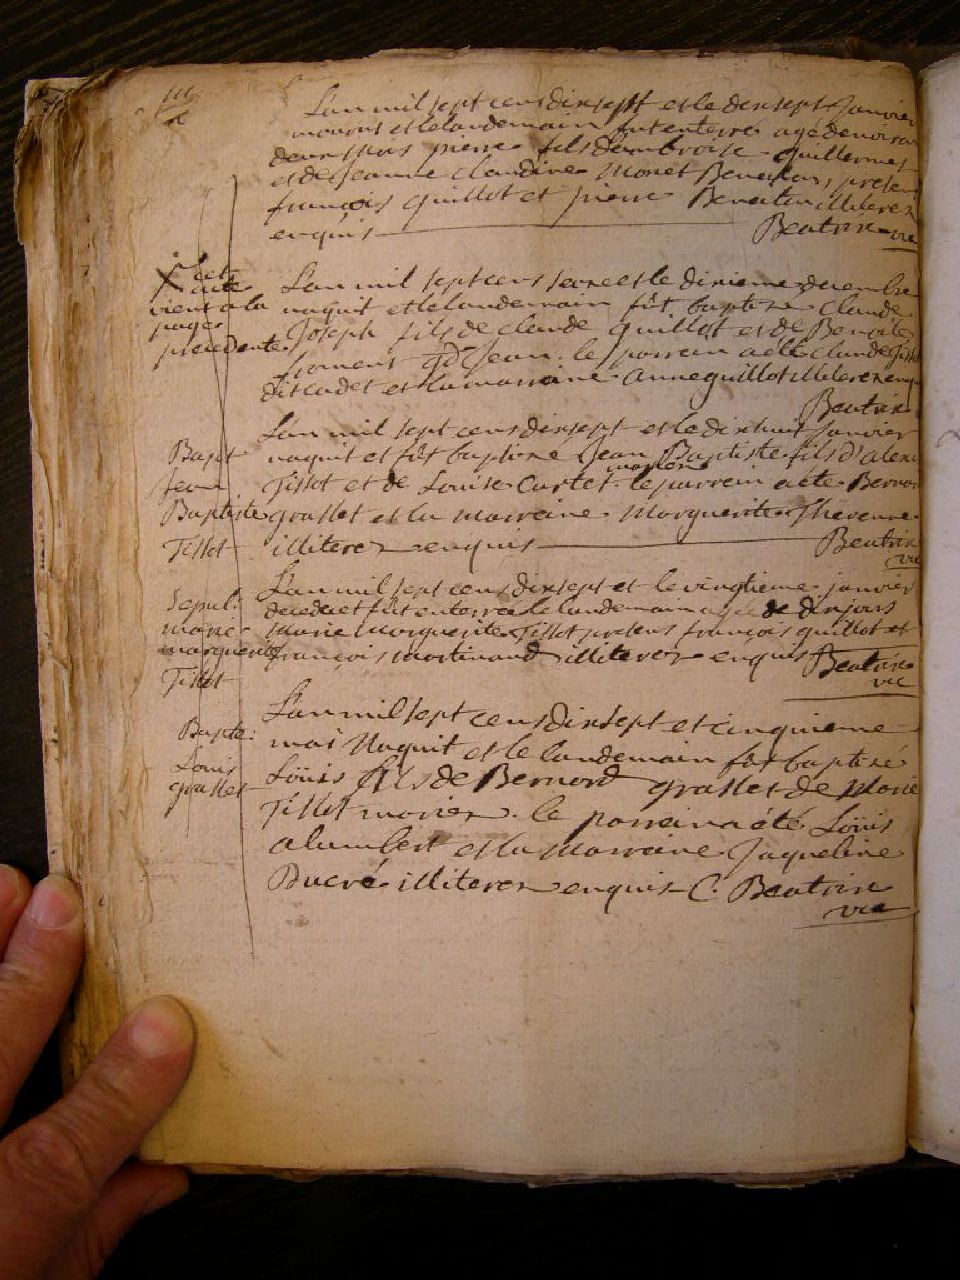 L'an mil sept cens dixsept et le dixsept Janvier
mourut et le landemain fut enterré agé denviron
deux mois pierre fils d'ambroise Guillermet
et de Jeanne Claudine Monet
françois Guillot et pierre illiterez
enquis Beatrix vic
L'an mil sept cens seze et le dixieme decembre
naquit et le landemain fût baptizé Claude
Joseph fils de Claude Guillot et de Benoite
froment Jean. le parrein a été Claude Tissot
dit Cadet et la marraine Anne Guillot illiterez enquis
Beatrix
acte
vient a la
page
precedente
L'an mil sept cens dixsept et le dixhuit Janvier
naquit et fût baptizé Jean Baptiste fils d'alexi
mariez
Tissot et de Louise Curtet. le parrein a été Bernard
grasset et la marraine Marguerite Thevenne
illiterez enquis Beatrix
vic
Bapt
Jean
Baptiste
Tissot
L'an mil sept cens dixsept et le vingtieme janvier
decedé et fût enterrée le landemain agée de dix jours
Marie Marguerite Tissot presens françois guillot et
françois martinand illiterez enquis Beatrix
vic
Sepul:
marie
marguerite
Tissot
L'an mil sept cens dixsept et cinquieme
mai Naquit et le landemain fût baptizé
Loüis fils de Bernard grasset de Marie
Tissot mariez. le parrein a été Loüis
alumbert et la Marraine Jaqueline
Ducré illiterez enquis C. Beatrix
vic
Bapte:
Louis
grasset